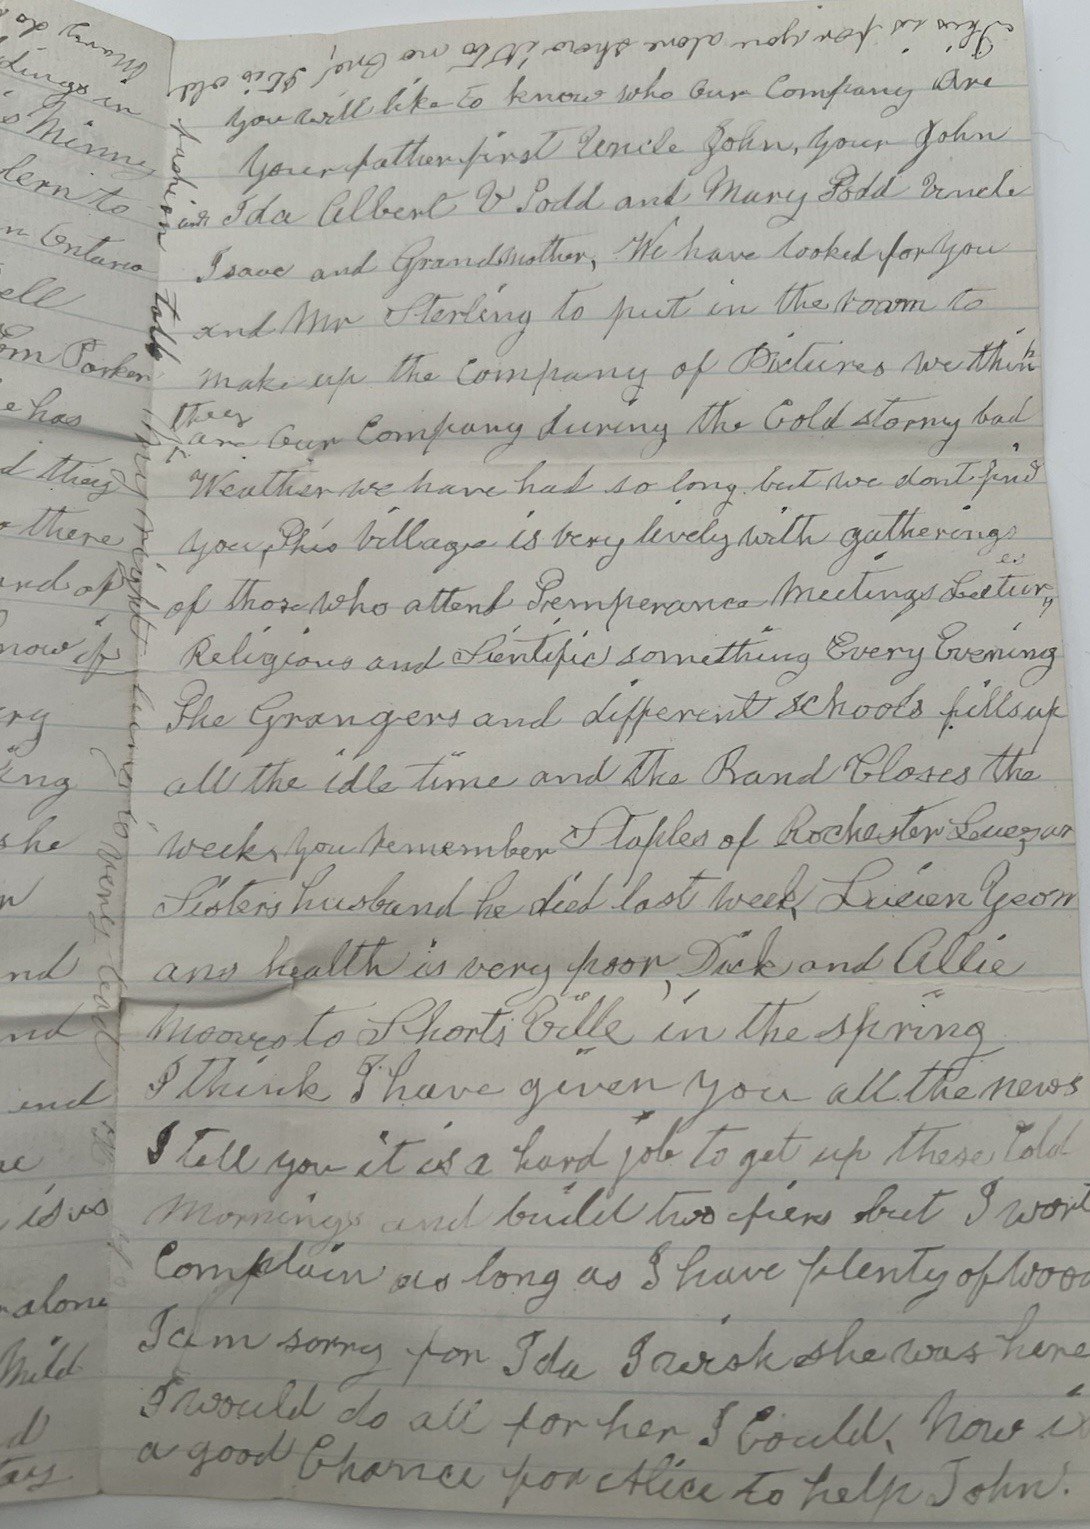 This is for you alone show it to no one, this old
fashion talk
you will like to know who Our Company are
Your father first Uncle John, your John
and Ida Albert V Todd and Mary Todd Uncle
Isaac and Grandmother, We have looked for you
and Mr Sterling to put in the room to
make up the Company of Pictures we think
they are Our Company during the Cold stormy bad
Weather we have had so long but we dont find
you, This Village is very lively with gatherings
of those who attend Temperance Meetings Lectures,
Religious and Sientific something Every Evening
The Grangers and different schools fills up
all the idle time and the Band Closes the
week, you remember Staples of Rochester
Sisters husband he died last week, Lucien Yeom
ans health is very poor, Dick and Allie
mooves to Shorts Ville in the spring
I think I have given you all the news
I tell you it is a hard job to get up these Cold
mornings and build two fiers but I wont
Complain as long as I have plenty of wood
I am sorry for Ida I wish she was here
I would do all for her I Could, Now is
a good Chance for Alice to help John.
Mary do
dings in
s Minny
lern to
n Ontario
ell
om Parker
e has
d they
o there
and of
know if
ery
ing
she
nd
nd
end
is us
alone
Mild
d